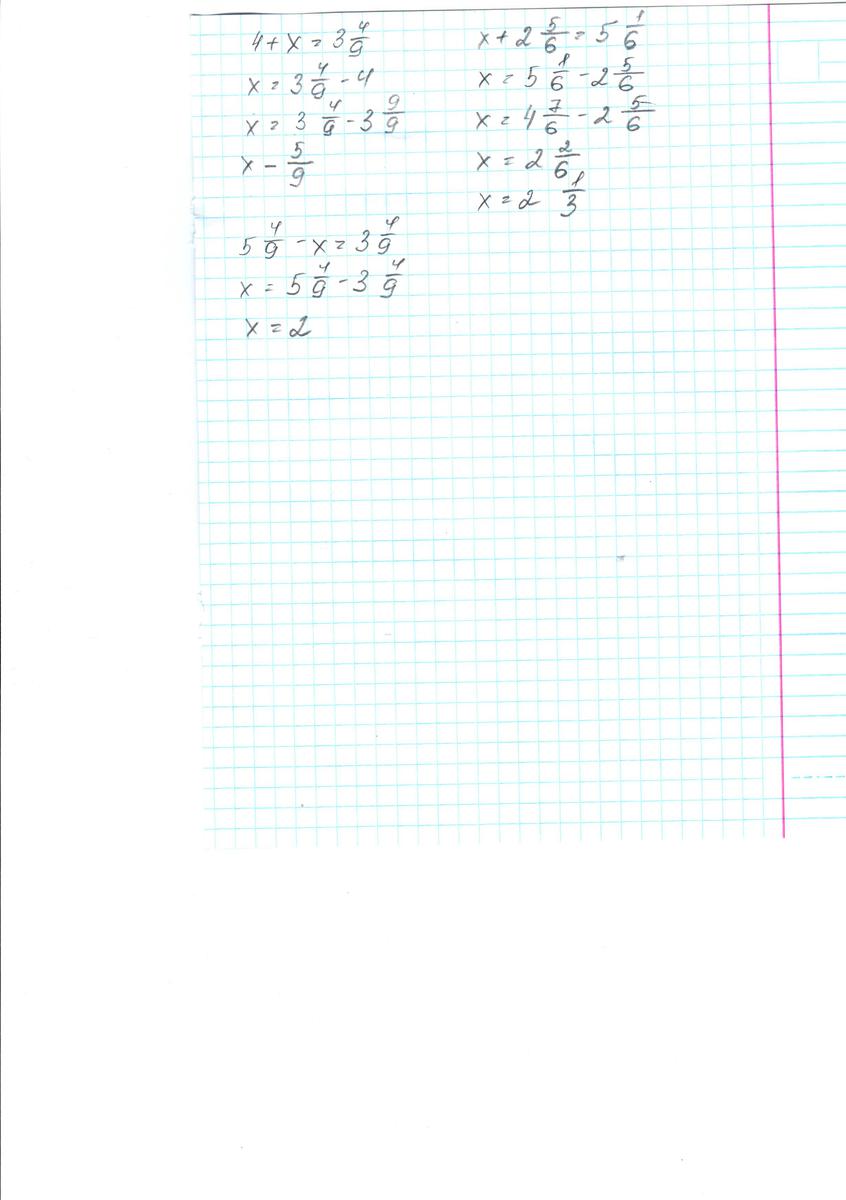 4 + x = 3 4/9
x = 3 4/9 - 4
x = 3 4/9 - 3 9/9
x - 5/9
5 4/9 - x = 3 4/9
x = 5 4/9 - 3 4/9
x = 2
x + 2 5/6 = 5 1/6
x = 5 1/6 - 2 5/6
x = 4 7/6 - 2 5/6
x = 2 2/6
x = 2 1/3